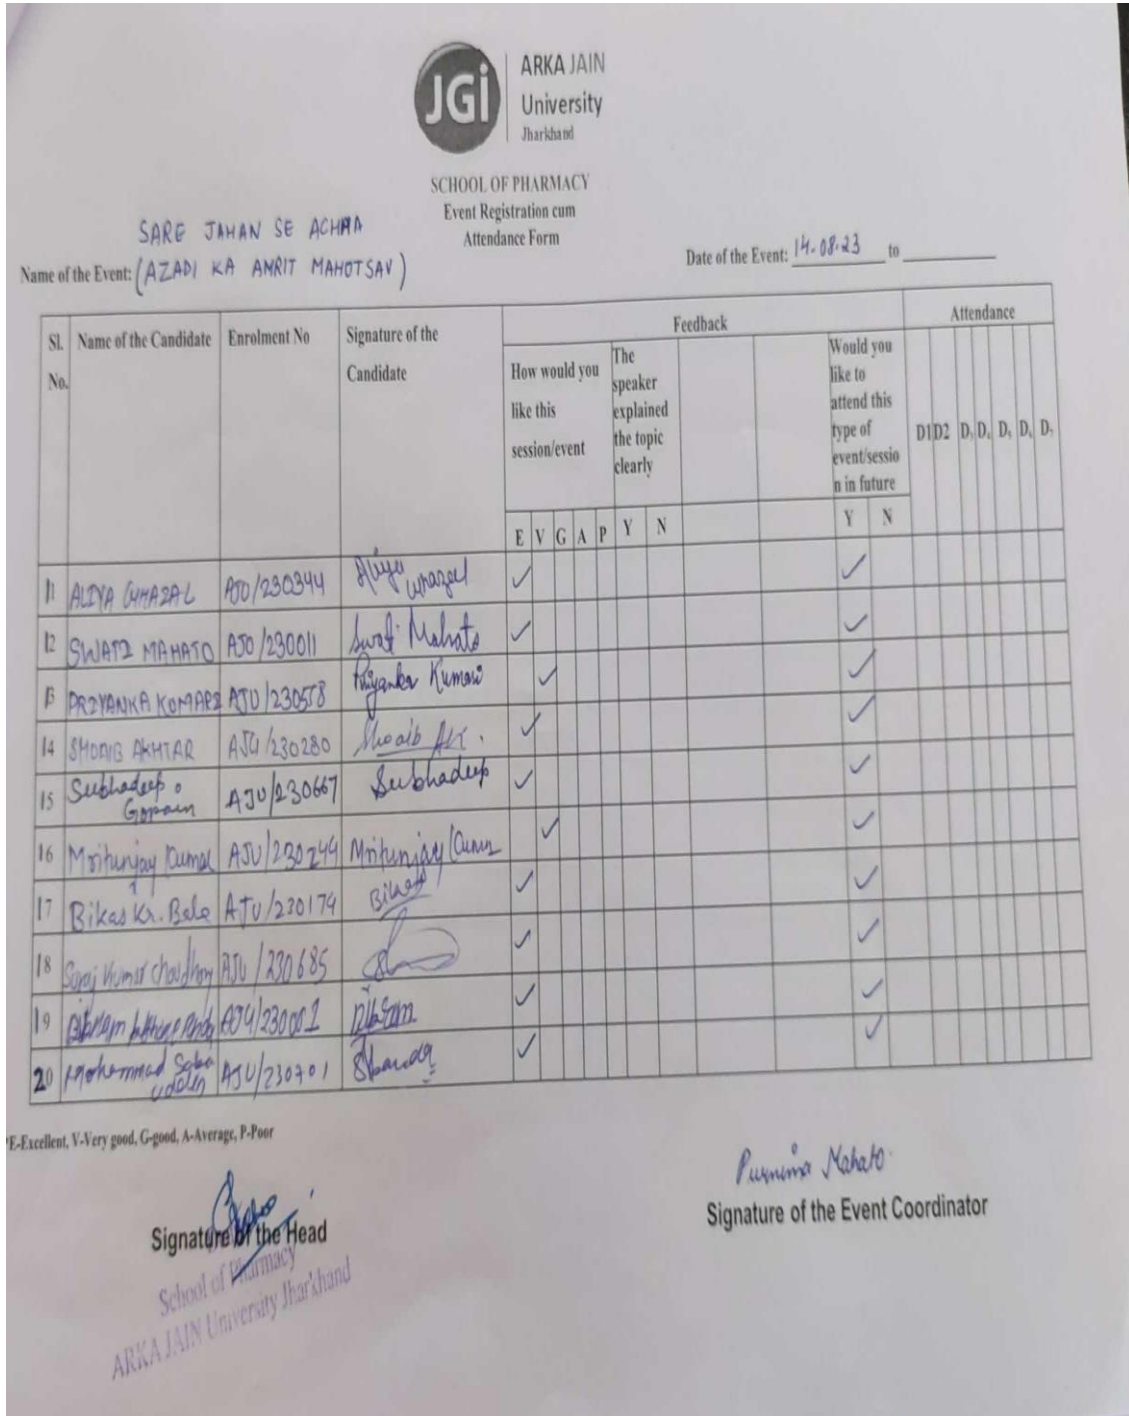 JGi
ARKA JAIN
University
Jharkhand
SCHOOL OF PHARMACY
Event Registration cum
Attendance Form
SARE JAHAN SE ACHHA
Name of the Event: (AZADI KA AMRIT MAHOTSAV)
Date of the Event: 14.08.23 to
Sl. No. Name of the Candidate Enrolment No Signature of the Candidate Feedback Attendance
How would you like this session/event
The speaker explained the topic clearly
Would you like to attend this type of event/session in future
D1 D2 D3 D4 D5 D6 D7
E V G A P Y N Y N
11 ALIYA GHAZAL AJU/230344 Aliya Ghazal ✓ ✓
12 SWATI MAHATO AJU/230011 Swati Mahato ✓ ✓
13 PRIYANKA KUMARI AJU/230558 Priyanka Kumari ✓ ✓
14 SHOAIB AKHTAR AJU/230280 Shoaib Akt. ✓ ✓
15 Subhadeep Gorain AJU/230667 Subhadeep ✓ ✓
16 Mritunjay Kumar AJU/230244 Mritunjay Kumar ✓ ✓
17 Bikas Kr. Bele AJU/230174 Bikas ✓ ✓
18 Suraj Kumar Choudhary AJU/230685 ✓ ✓
19 AJU/230001 ✓ ✓
20 Mohammad Saba uddin AJU/230701 ✓ ✓
*E-Excellent, V-Very good, G-good, A-Average, P-Poor
Purnima Mahato
Signature of the Head
Signature of the Event Coordinator
School of Pharmacy
ARKA JAIN University Jharkhand